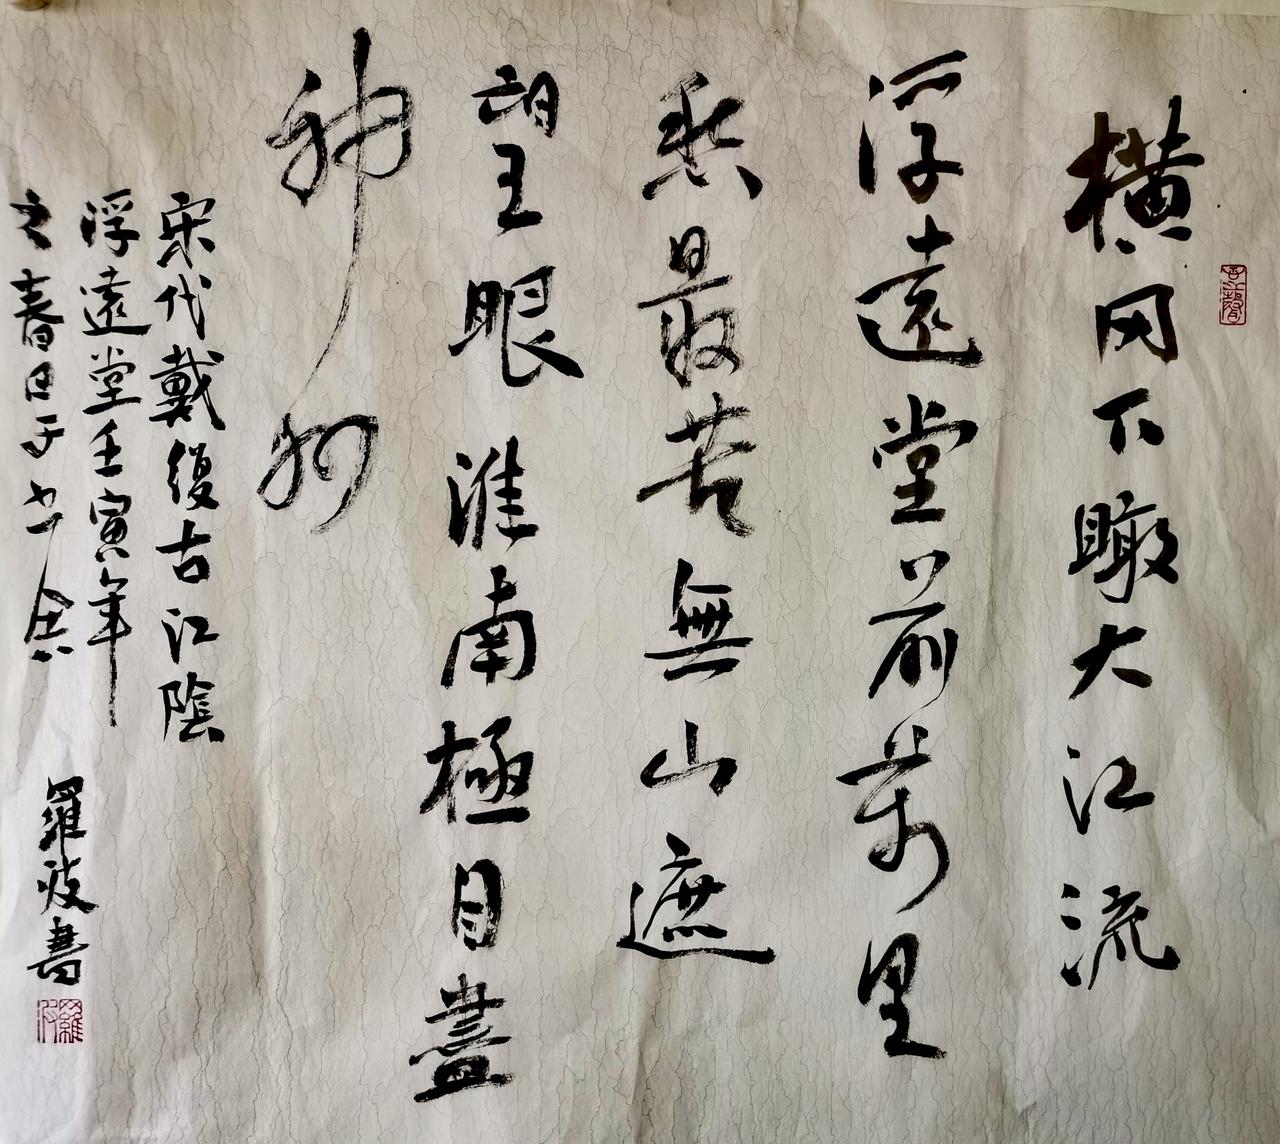 横冈下瞰大江流
浮遠堂前萬里
愁最苦無山遮
望眼淮南極目盡
神州
宋代戴復古江陰
浮遠堂壬寅年
之春日于舍
羅波書
羅波